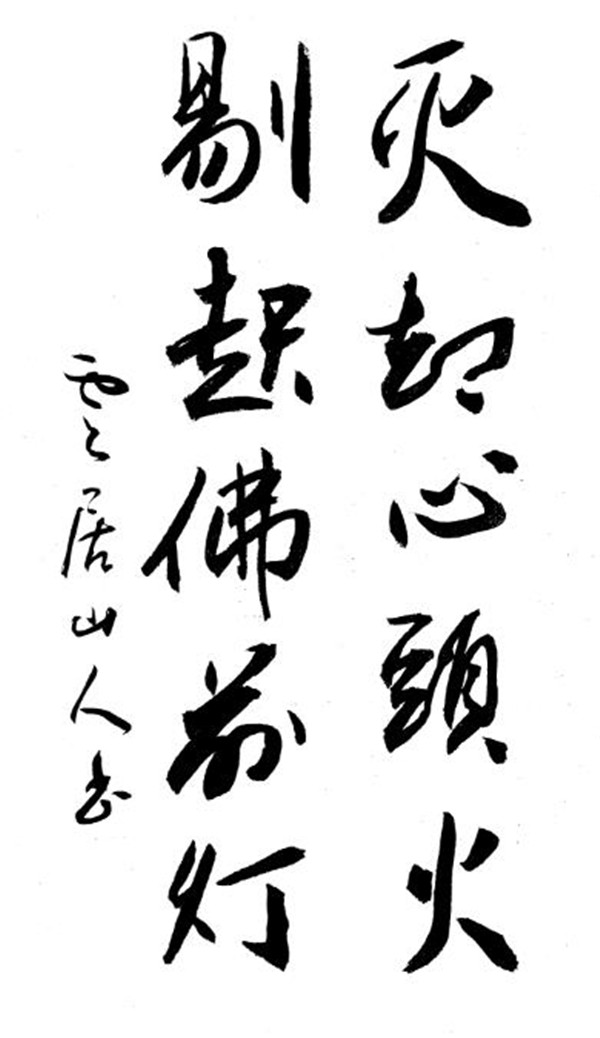 灭却心頭火
剔起佛前灯
雲居山人书